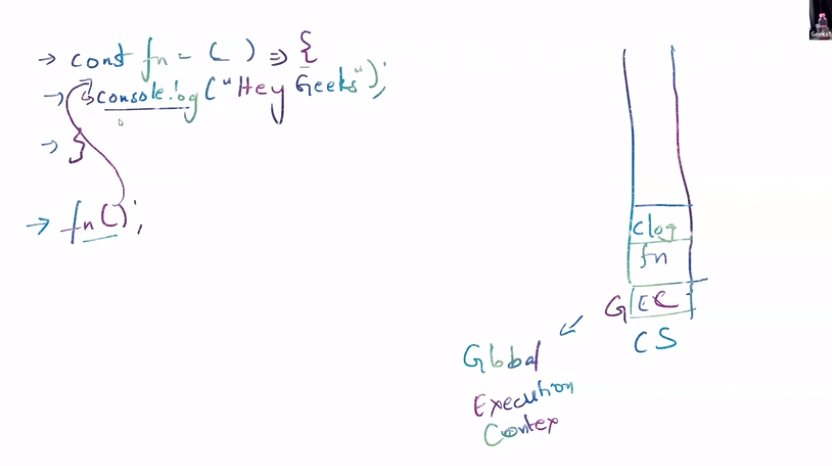 → const fn = ( ) => {
→ console.log("Hey Geeks");
→ }
→ fn();
clog
fn
GEC
CS
Global
Execution
Contex
Geeks